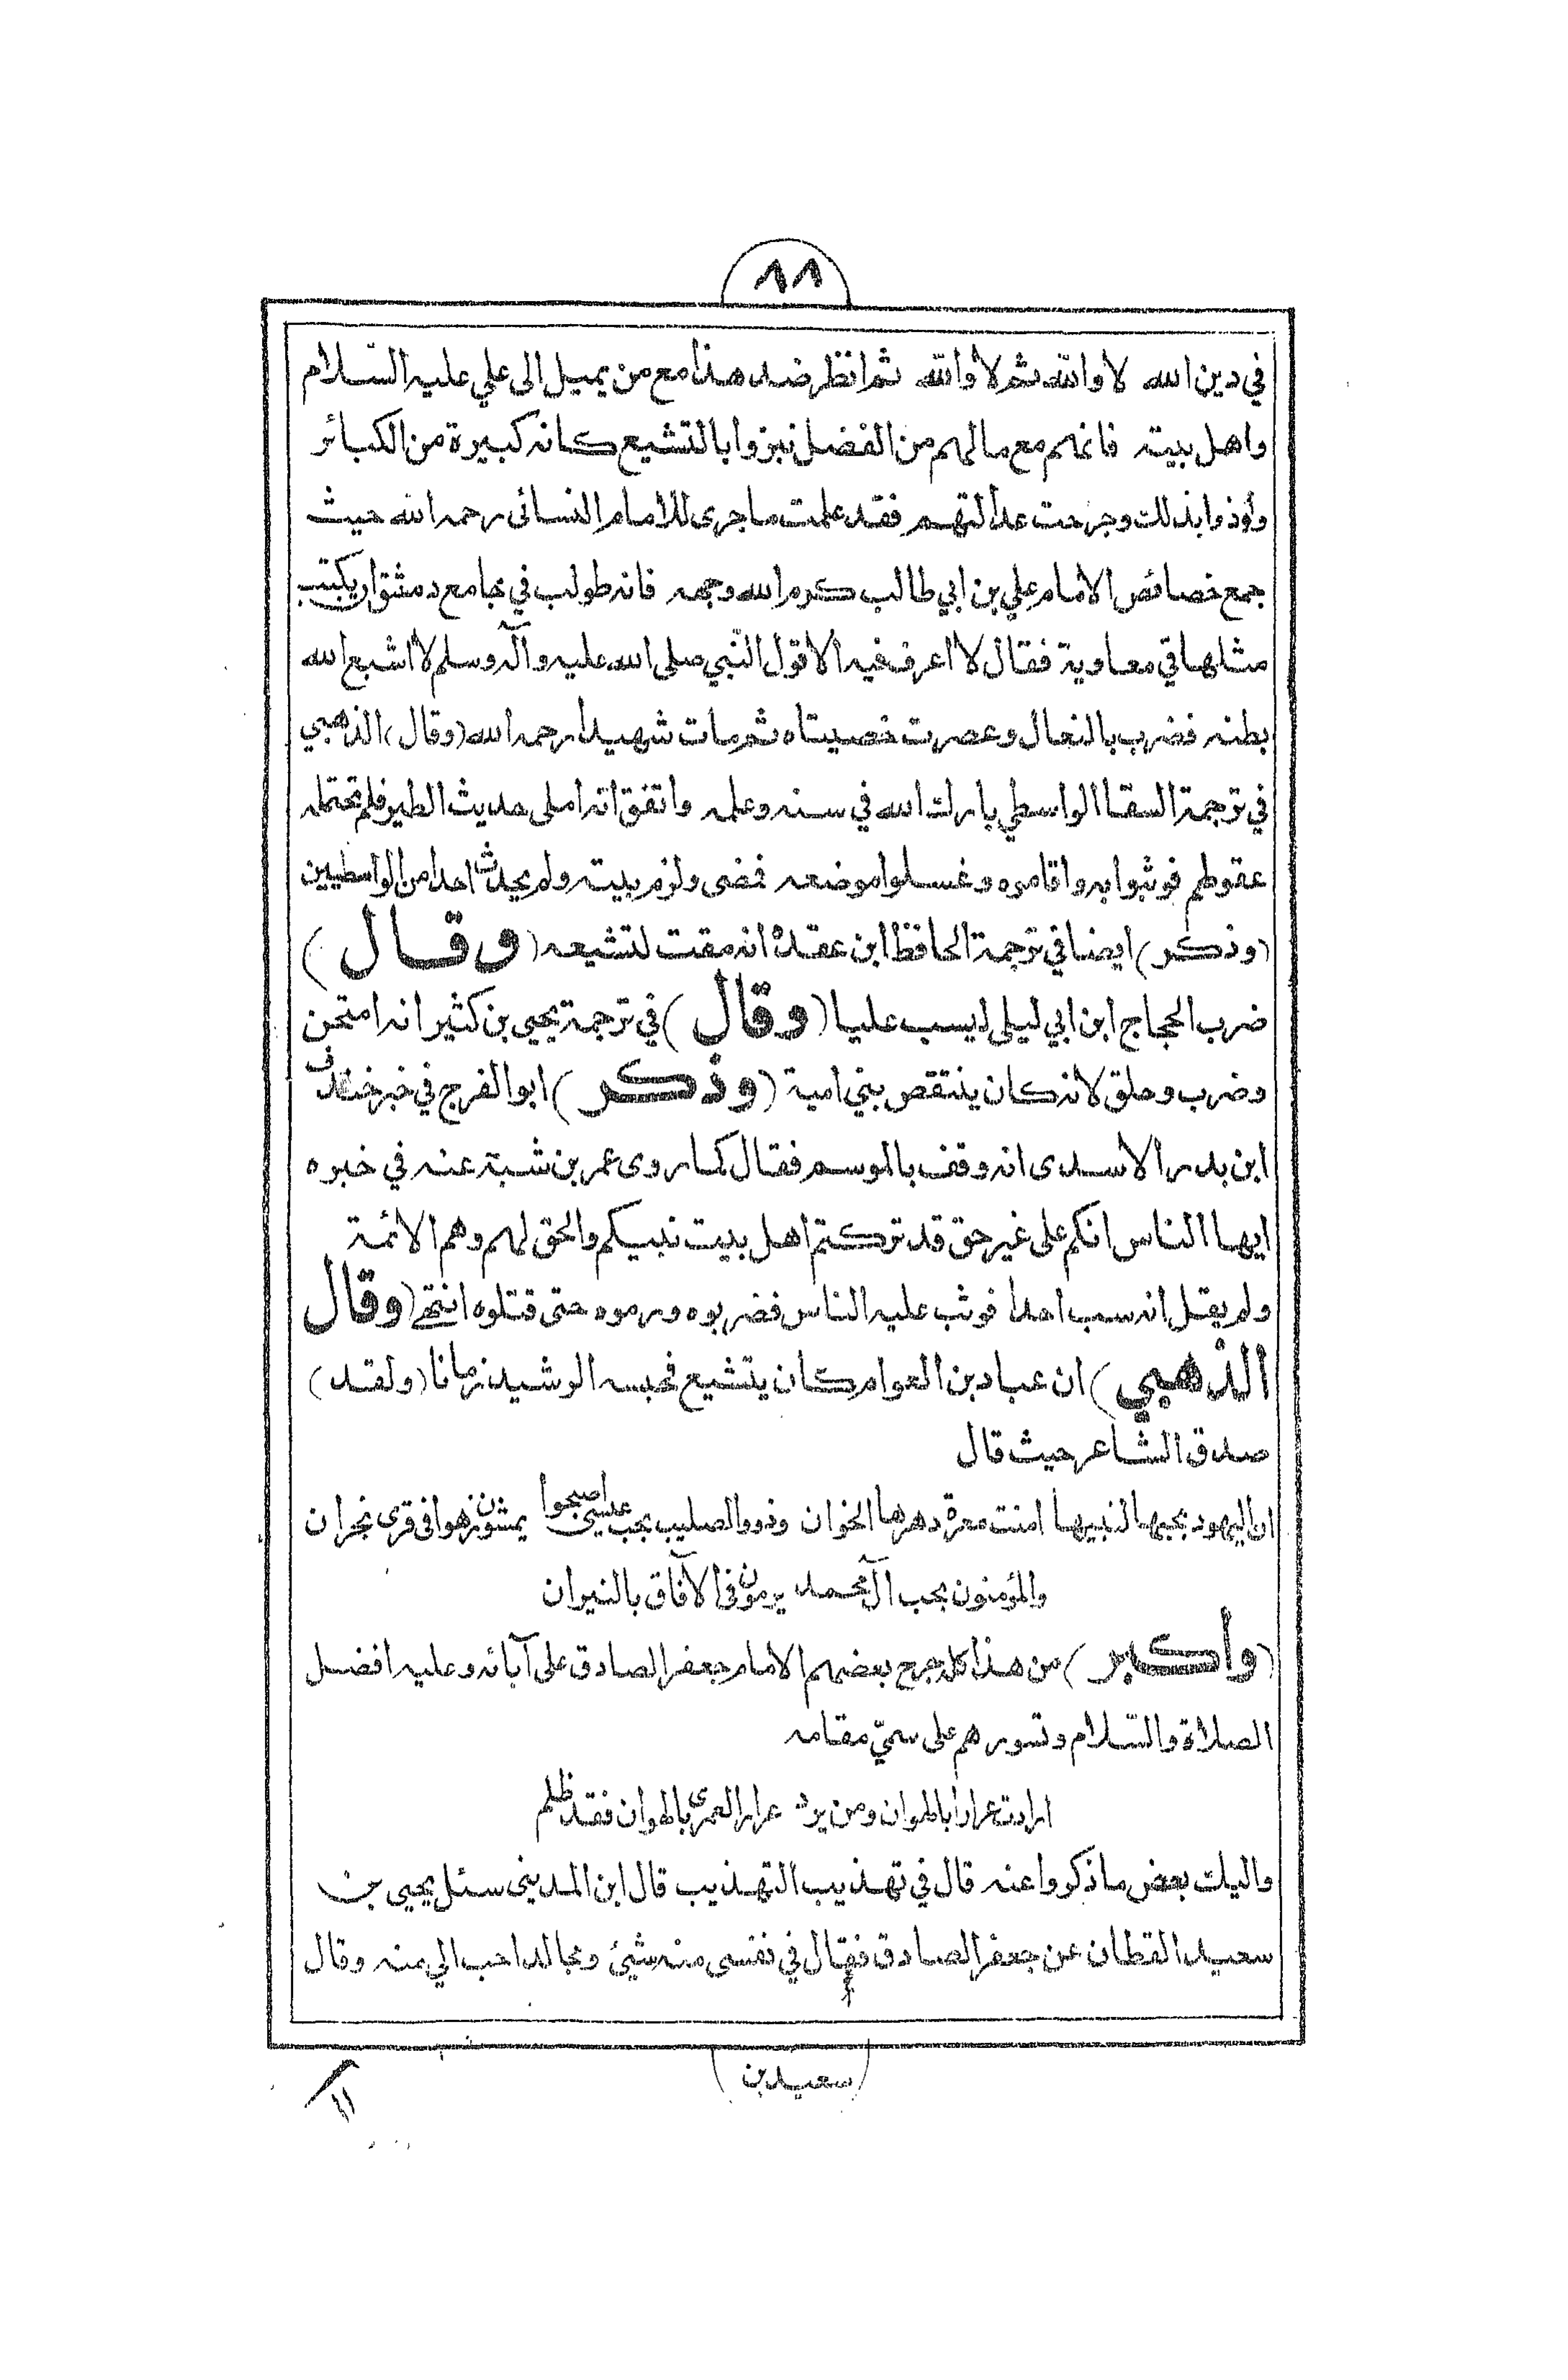 ٨٨
في دين الله لا والله ثم لا والله ثم انظر ضد هذا مع من يميل الى علي عليه السّلام
واهل بيته فانهم مع مالهم من الفضل نبزوا بالتشيع كانه كبيرة من الكبائر
وأوذوا بذلك وجرحت عدالتهم فقد علمت ما جرى للامام النسائى رحمه الله حيث
جمع خصائص الامام علي بن ابي طالب كرم الله وجهه فانه طولب في جامع دمشق ان يكتب
مثلها في معاوية فقال لا اعرف فيه الا قول النّبي صلى الله عليه وآله وسلم لا اشبع الله
بطنه فضرب بالنعال وعصرت خصيتاه ثم مات شهيدا رحمه الله (وقال) الذهبي
في ترجمة السقا الواسطي بارك الله في سنه وعلمه واتفق انه املى حديث الطير فلم تحتمله
عقولهم فوثبوا به واقاموه وغسلوا موضعه فمضى ولزم بيته ولم يحدث احدا من الواسطيين
(وذكر) ايضا في ترجمة الحافظ ابن عقدة انه مقت لتشيعه (وقال)
ضرب الحجاج ابن ابي ليلى ليسب عليا (وقال) في ترجمة يحيى بن كثير انه امتحن
وضرب وحلق لانه كان ينتقص بني امية (وذكر) ابو الفرج في خبر خندف
ابن بدر الاسدى انه وقف بالموسم فقال كما روى عمر بن شبة عنه في خبره
ايها الناس انكم على غير حق قد تركتم اهل بيت نبيكم والحق لهم وهم الائمة
ولم يقل انه سب احدا فوثب عليه الناس فضربوه ورموه حتى قتلوه انتهى (وقال
الذهبي) ان عباد بن العوام كان يتشيع فحبسه الرشيد زمانا (ولقد)
صدق الشاعر حيث قال
ان اليهود بحبها لنبيها امنت معرة دهرها الخوان وذوو الصليب بحب عيسى اصبحوا يمشون زهوا فى قرى نجران
والمؤمنون بحب آل محمد يرمون فى الآفاق بالنيران
(وأكبر) من هذا كله جرح بعضهم الامام جعفر الصادق على آبائه وعليه افضل
الصلاة والسّلام وتسورهم على سميّ مقامه
ارادت عرارا بالهوان ومن يرد عرارا لعمرى بالهوان فقد ظلم
واليك بعض ما ذكروا عنه قال في تهذيب التهذيب قال ابن المدينى سئل يحيى بن
سعيد القطان عن جعفر الصادق فقال في نفسى منه شيئ ومجالد احب الي منه وقال
(سعيد بن)